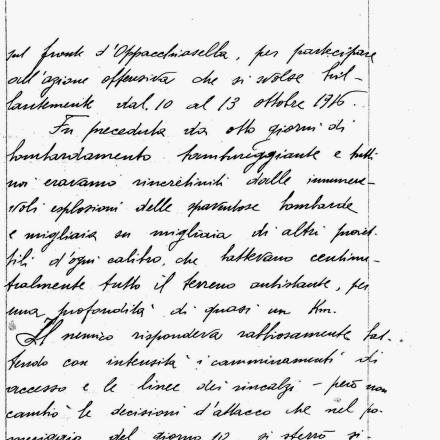 sul fronte d'Oppacchiasella, per partecipare
all'azione offensiva che si svolse bril-
lantemente dal 10 al 13 ottobre 1916.
Fu preceduta da otto giorni di
bombardamento tambureggiante e tutti
noi eravamo rincretiniti dalle innumere-
voli esplosioni delle spaventose bombarde
e migliaia su migliaia di altri proiet-
tili d'ogni calibro, che battevano centime-
tralmente tutto il terreno antistante, per
una profondità di quasi un Km.
Il nemico rispondeva rabbiosamente bat-
tendo con intensità i camminamenti di
accesso e le linee dei rincalzi - però non
cambiò le decisioni d'attacco che nel po-
meriggio del giorno 10 si sferrò si